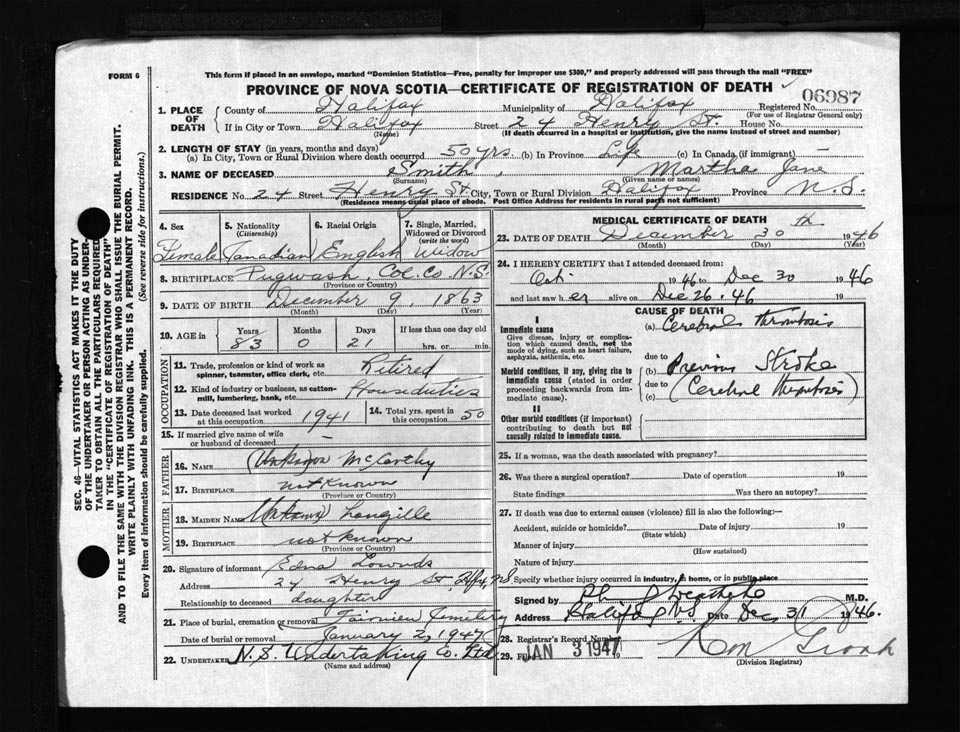 FORM 6
This form if placed in an envelope, marked "Dominion Statistics—Free, penalty for improper use $300," and properly addressed will pass through the mail "FREE"
PROVINCE OF NOVA SCOTIA—CERTIFICATE OF REGISTRATION OF DEATH
06987
1. PLACE OF DEATH
County of Halifax Municipality of Halifax Registered No.
(For use of Registrar General only)
If in City or Town Halifax Street 24 Henry St. House No.
(Name) (If death occurred in a hospital or institution, give the name instead of street and number)
2. LENGTH OF STAY (in years, months and days)
(a) In City, Town or Rural Division where death occurred 50 yrs. (b) In Province Life (c) In Canada (if immigrant) —
3. NAME OF DECEASED Smith, Martha Jane
(Surname) (Given name or names)
RESIDENCE No. 24 Street Henry St. City, Town or Rural Division Halifax Province N.S.
(Residence means usual place of abode. Post Office Address for residents in rural parts not sufficient)
4. Sex 5. Nationality (Citizenship) 6. Racial Origin 7. Single, Married, Widowed or Divorced (write the word)
Female Canadian English Widow
8. BIRTHPLACE Pugwash, Col. Co. N.S.
(Province or Country)
9. DATE OF BIRTH December 9, 1863
(Month) (Day) (Year)
10. AGE in Years Months Days If less than one day old
83 0 21 hrs. or min.
OCCUPATION
11. Trade, profession or kind of work as spinner, teamster, office clerk, etc. Retired
12. Kind of industry or business, as cotton-mill, lumbering, bank, etc. House duties
13. Date deceased last worked at this occupation 1941 14. Total yrs. spent in this occupation 50
15. If married give name of wife or husband of deceased —
FATHER
16. NAME (Unknown) McCarthy
17. BIRTHPLACE not known
(Province or Country)
MOTHER
18. MAIDEN NAME (Unknown) Langille
19. BIRTHPLACE not known
(Province or Country)
20. Signature of informant Edna Lownds
Address 24 Henry St. Hfx, N.S
Relationship to deceased daughter
21. Place of burial, cremation or removal Fairview Cemetery
Date of burial or removal January 2, 1947
22. UNDERTAKER N.S. Undertaking Co. Ltd.
(Name and address)
MEDICAL CERTIFICATE OF DEATH
23. DATE OF DEATH December 30th 1946
(Month) (Day) (Year)
24. I HEREBY CERTIFY that I attended deceased from:
Oct 1946 to Dec 30 1946
and last saw her alive on Dec 26. 46 19
CAUSE OF DEATH
I
Immediate cause (a) Cerebral thrombosis
Give disease, injury or complication which caused death, not the mode of dying, such as heart failure, asphyxia, asthenia, etc.
due to
Morbid conditions, if any, giving rise to immediate cause (stated in order proceeding backwards from immediate cause).
(b) Previous Stroke
due to
(c) (Cerebral thrombosis)
II
Other morbid conditions (if important) contributing to death but not causally related to immediate cause.
25. If a woman, was the death associated with pregnancy?
26. Was there a surgical operation? Date of operation 19
State findings Was there an autopsy?
27. If death was due to external causes (violence) fill in also the following:—
Accident, suicide or homicide? Date of injury 19
(State which)
Manner of injury
(How sustained)
Nature of injury
Specify whether injury occurred in industry, in home, or in public place
Signed by M.D.
Address Halifax N.S. Date Dec 31 1946.
28. Registrar's Record Number
29. Filed JAN 3 1947
(Division Registrar)
SEC. 46—VITAL STATISTICS ACT MAKES IT THE DUTY
OF THE UNDERTAKER OR PERSON ACTING AS UNDER-
TAKER TO OBTAIN ALL THE PARTICULARS REQUIRED
IN THE "CERTIFICATE OF REGISTRATION OF DEATH"
AND TO FILE THE SAME WITH THE DIVISION REGISTRAR WHO SHALL ISSUE THE BURIAL PERMIT.
WRITE PLAINLY WITH UNFADING INK. THIS IS A PERMANENT RECORD.
Every item of information should be carefully supplied. (See reverse side for instructions.)